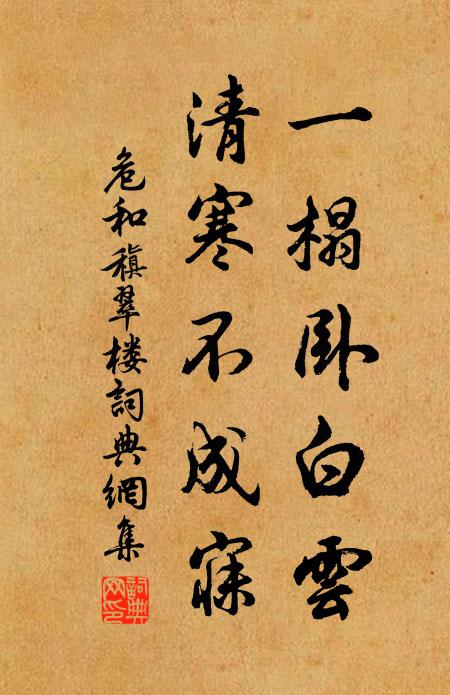 一榻卧白雲
清寒不成寐
危和稹翠楼詞典網集
詞典
网印